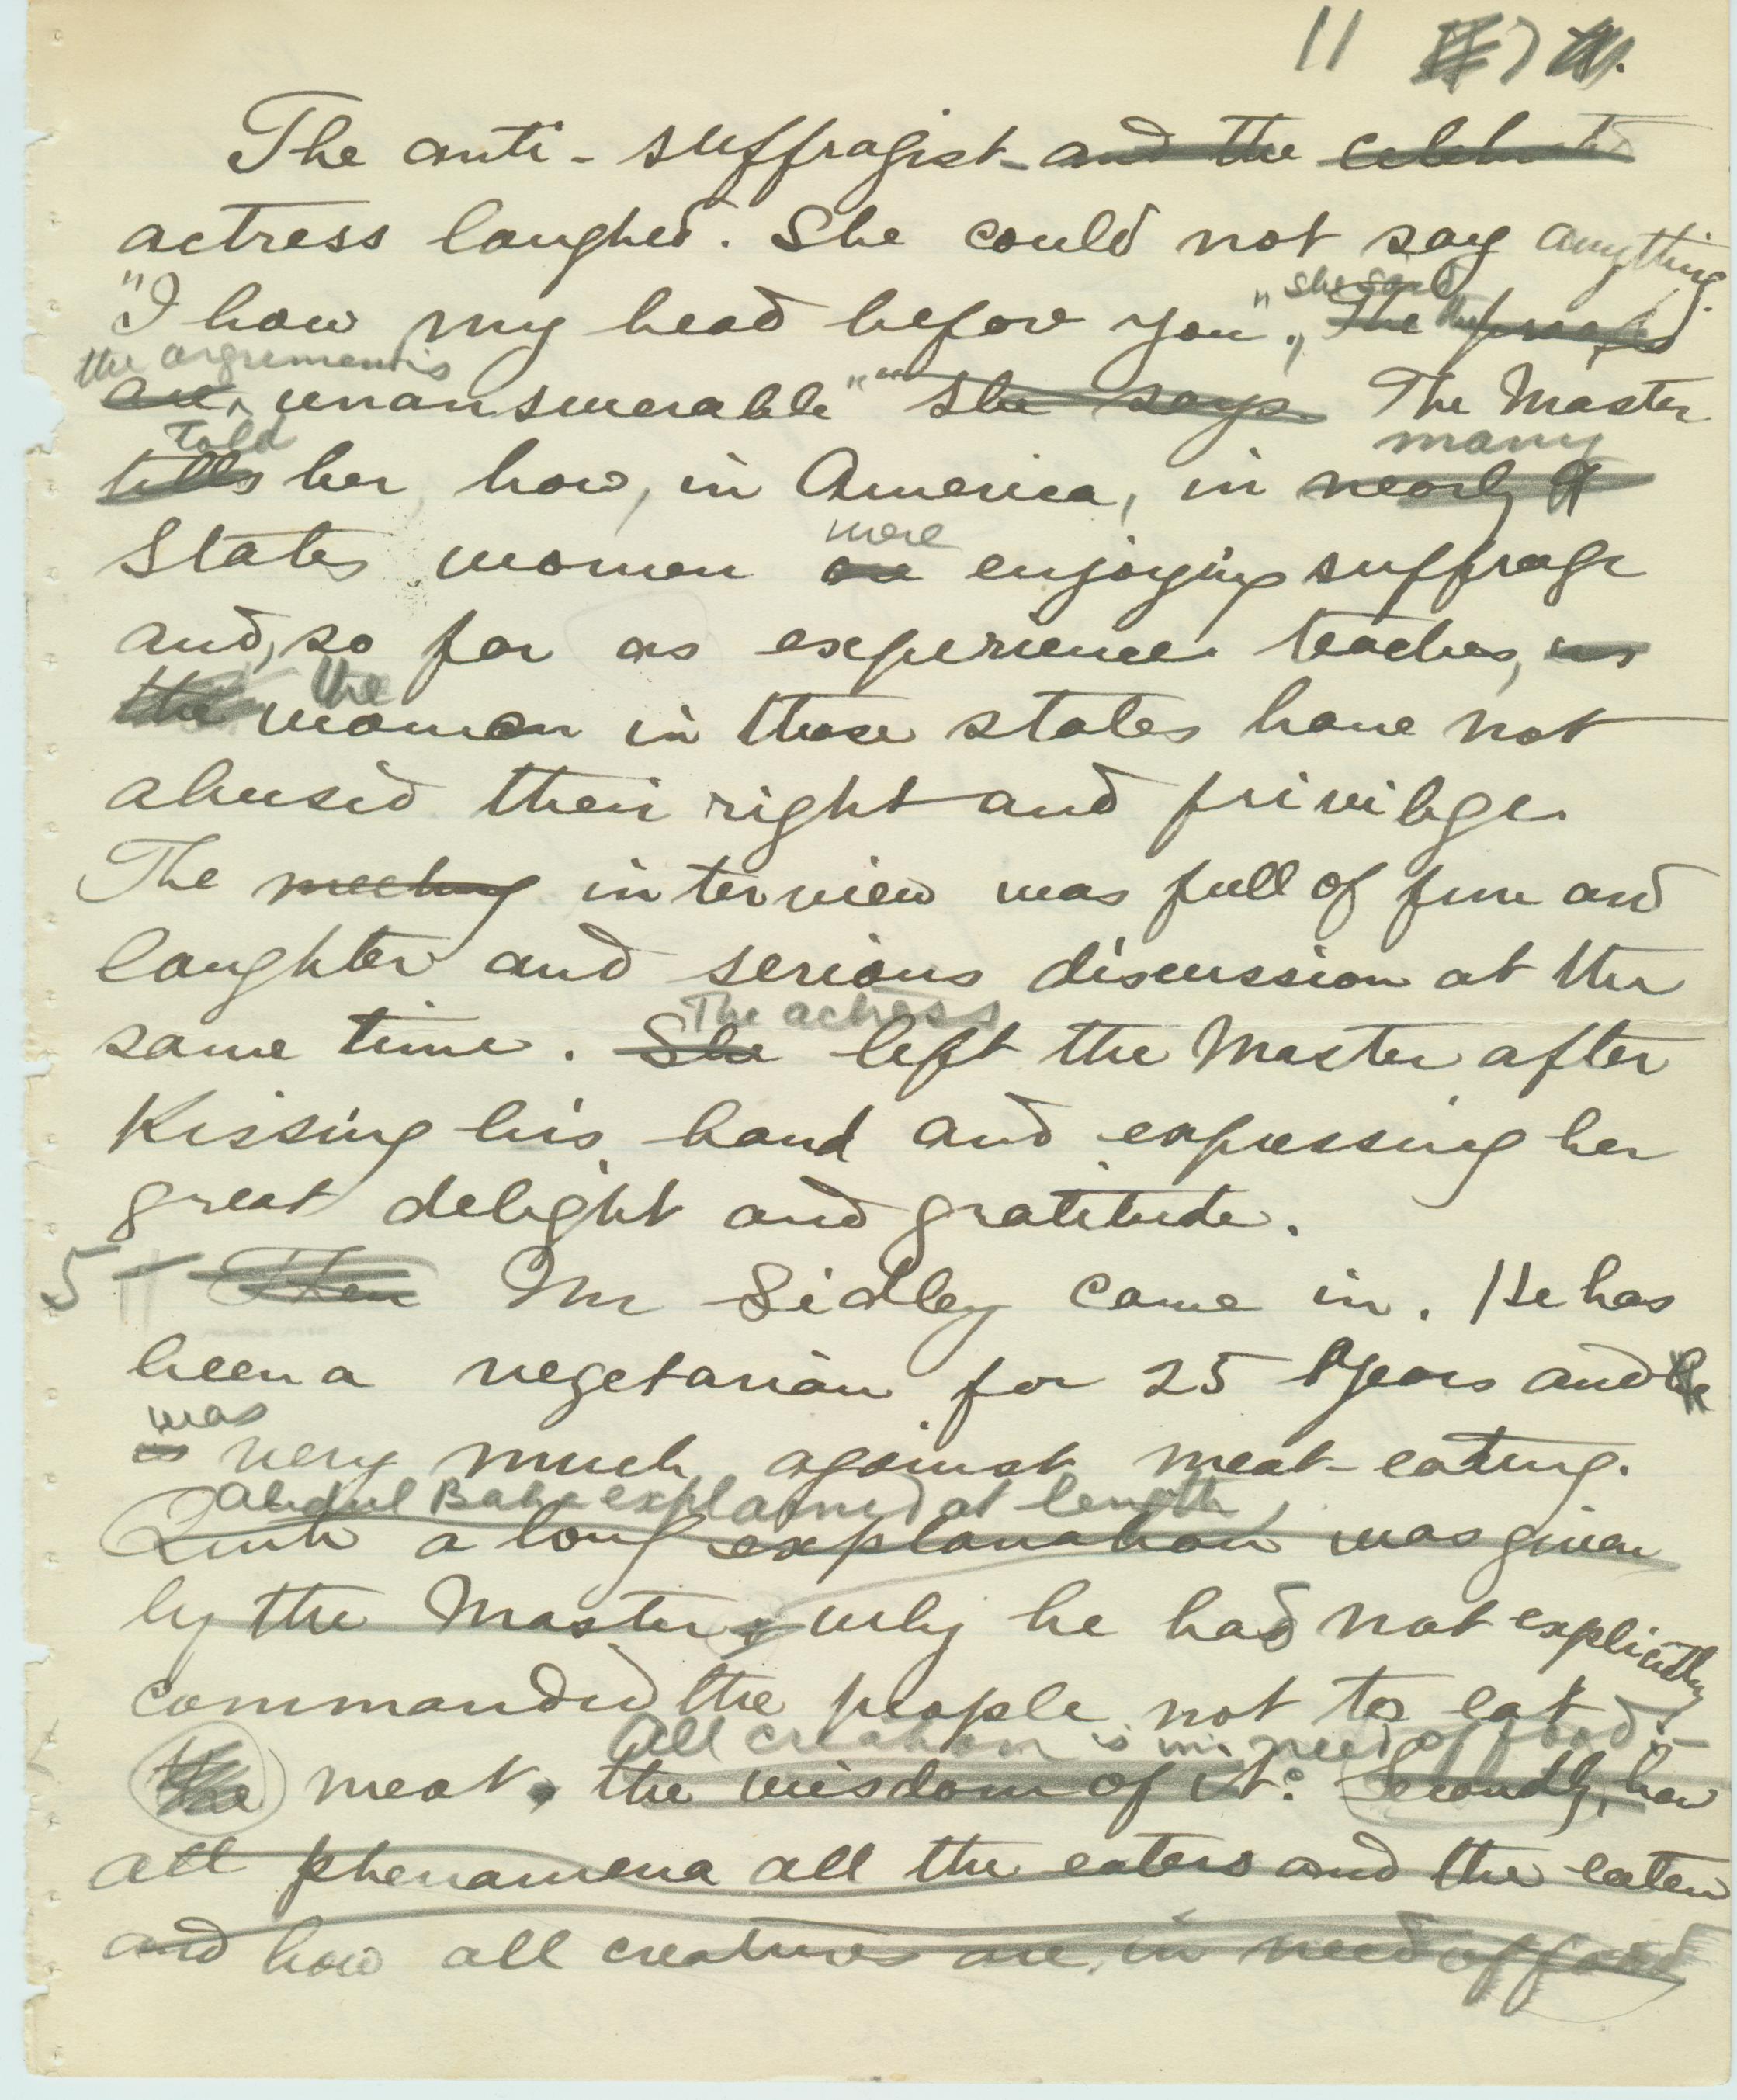 11 7
The anti-suffragist and the celebrated
actress laughed. She could not say anything.
she said
"I bow my head before you", the proofs
the argument is
are unanswerable" she says. The Master
told many
tells her, how, in America, in nearly 9
were
States women are enjoying suffrage
and, so far as experience teaches, us
the
the women in those states have not
abused their right and privilege.
The meeting interview was full of fun and
laughter and serious discussion at the
The actress
same time. She left the Master after
Kissing his hand and expressing her
great delight and gratitude.
5 Then Mr Sidley came in. He has
been a vegetarian for 25 years and he
was
is very much against meat-eating.
Abdul Baha explained at length
Quite a long explanation was given
by the Master, why he had not explicitly
commanded the people not to eat
All creation is in need of food.
the meat, the wisdom of it. Secondly, how
all phenomena all the eaters and the eaten
and how all creatures are in need of food